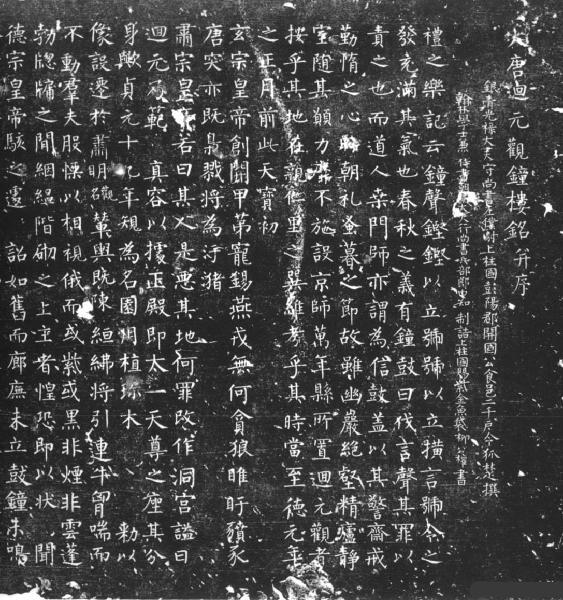 大唐迴元觀鐘樓銘并序
銀青光祿大夫守尚書左僕射上柱國彭陽郡開國公食邑二千戶令狐楚撰
翰林學士兼侍書朝議大夫行尚書兵部郎中知制誥上柱國賜紫金魚袋柳公權書
禮之樂記云鐘聲鏗鏗以立號號以立橫言號令之
發充滿其氣也春秋之義有鐘鼓曰伐言聲其罪以
責之也而道人桒門師亦謂為信鼓盖以其警齋戒
勤惰之心時朝礼早暮之節故雖幽巖絕壑精廬静
室隨其願力靡不施設京師萬年縣所置迴元觀者
按乎其地在親仁里之巽維考乎其時當至德元年
之正月前此天寶初
玄宗皇帝創開甲第寵錫燕戎無何貪狼睢盱豶豕
唐突亦既梟戮將為汙猪
肅宗皇帝若曰其人是惡其地何罪改作洞宮謚曰
迴元乃範 真容以據正殿即太一天尊之座其分
身歟貞元十九年規為名園用植珎木 勑以
像設遷於肅明觀輦輿既陳絙紼將引連牛胷喘而
不動羣夫股慄以相視俄而或紫或黑非煙非雲蓬
勃牕牖之間絪縕階砌之上主者惶恐即以狀 聞
德宗皇帝駭之遽 詔如舊而廊廡未立鼓鐘未鳴